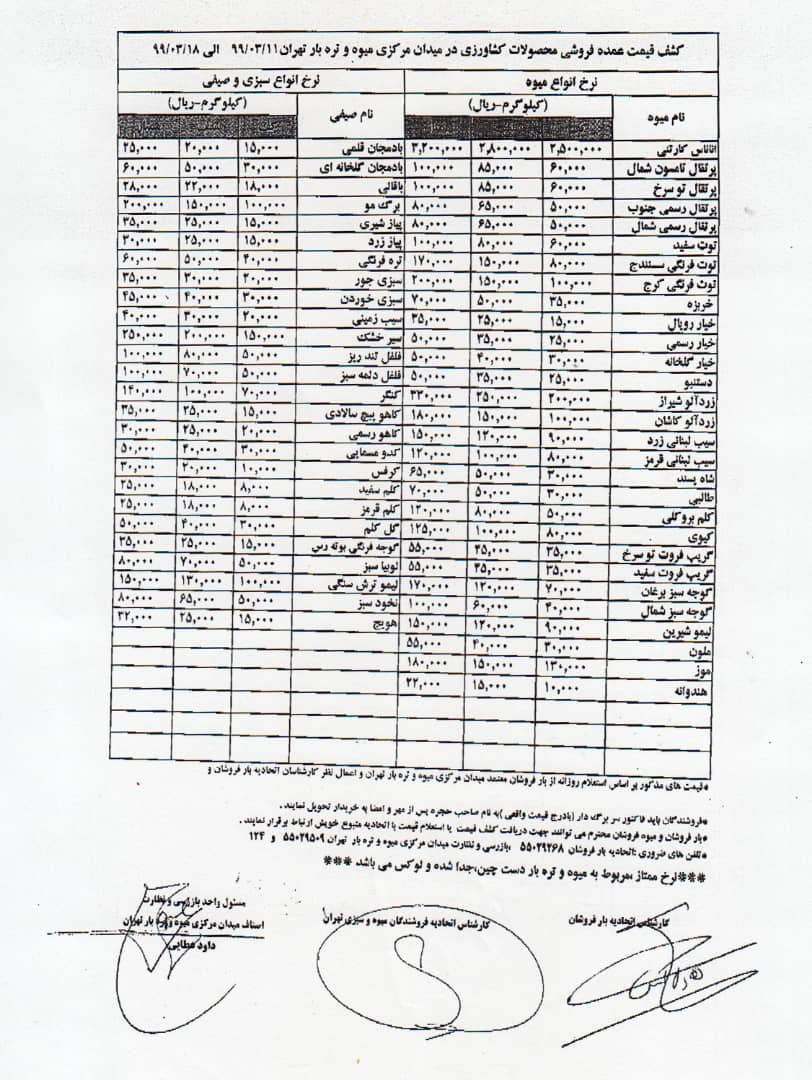 کشف قیمت عمده فروشی محصولات کشاورزی در میدان مرکزی میوه و تره بار تهران ۹۹/۰۳/۱۱ الی ۹۹/۰۳/۱۸
نرخ انواع میوه نرخ انواع سبزی و صیفی
نام میوه (کیلوگرم-ریال) نام صیفی (کیلوگرم-ریال)
اناناس کارتنی ۲,۵۰۰,۰۰۰ ۲,۸۰۰,۰۰۰ ۳,۲۰۰,۰۰۰ بادمجان قلمی ۱۵,۰۰۰ ۲۰,۰۰۰ ۲۵,۰۰۰
پرتقال تامسون شمال ۶۰,۰۰۰ ۸۵,۰۰۰ ۱۰۰,۰۰۰ بادمجان گلخانه ای ۳۰,۰۰۰ ۵۰,۰۰۰ ۶۰,۰۰۰
پرتقال تو سرخ ۶۰,۰۰۰ ۸۵,۰۰۰ ۱۰۰,۰۰۰ باقالی ۱۸,۰۰۰ ۲۲,۰۰۰ ۲۸,۰۰۰
پرتقال رسمی جنوب ۵۰,۰۰۰ ۶۵,۰۰۰ ۸۰,۰۰۰ برگ مو ۱۰۰,۰۰۰ ۱۵۰,۰۰۰ ۲۰۰,۰۰۰
پرتقال رسمی شمال ۵۰,۰۰۰ ۶۵,۰۰۰ ۸۰,۰۰۰ پیاز شیری ۱۵,۰۰۰ ۲۵,۰۰۰ ۳۵,۰۰۰
توت سفید ۶۰,۰۰۰ ۸۰,۰۰۰ ۱۰۰,۰۰۰ پیاز زرد ۱۵,۰۰۰ ۲۵,۰۰۰ ۳۰,۰۰۰
توت فرنگی سنندج ۸۰,۰۰۰ ۱۵۰,۰۰۰ ۱۷۰,۰۰۰ تره فرنگی ۴۰,۰۰۰ ۵۰,۰۰۰ ۶۰,۰۰۰
توت فرنگی کرج ۱۰۰,۰۰۰ ۱۵۰,۰۰۰ ۲۰۰,۰۰۰ سبزی جور ۲۰,۰۰۰ ۳۰,۰۰۰ ۳۵,۰۰۰
خربزه ۳۵,۰۰۰ ۵۰,۰۰۰ ۷۰,۰۰۰ سبزی خوردن ۳۰,۰۰۰ ۴۰,۰۰۰ ۴۵,۰۰۰
خیار رویال ۱۵,۰۰۰ ۲۵,۰۰۰ ۳۵,۰۰۰ سیب زمینی ۲۰,۰۰۰ ۳۰,۰۰۰ ۴۰,۰۰۰
خیار رسمی ۲۵,۰۰۰ ۳۵,۰۰۰ ۵۰,۰۰۰ سیر خشک ۱۵۰,۰۰۰ ۲۰۰,۰۰۰ ۲۵۰,۰۰۰
خیار گلخانه ۳۰,۰۰۰ ۴۰,۰۰۰ ۵۰,۰۰۰ فلفل تند ریز ۵۰,۰۰۰ ۸۰,۰۰۰ ۱۰۰,۰۰۰
دستنبو ۲۵,۰۰۰ ۳۵,۰۰۰ ۵۰,۰۰۰ فلفل دلمه سبز ۵۰,۰۰۰ ۷۰,۰۰۰ ۱۰۰,۰۰۰
زردآلو شیراز ۲۰۰,۰۰۰ ۲۵۰,۰۰۰ ۳۲۰,۰۰۰ کنگر ۷۰,۰۰۰ ۱۰۰,۰۰۰ ۱۴۰,۰۰۰
زردآلو کاشان ۱۰۰,۰۰۰ ۱۵۰,۰۰۰ ۱۸۰,۰۰۰ کاهو پیچ سالادی ۱۵,۰۰۰ ۲۵,۰۰۰ ۳۵,۰۰۰
سیب لبنانی زرد ۹۰,۰۰۰ ۱۲۰,۰۰۰ ۱۵۰,۰۰۰ کاهو رسمی ۲۰,۰۰۰ ۲۵,۰۰۰ ۳۰,۰۰۰
سیب لبنانی قرمز ۸۰,۰۰۰ ۱۰۰,۰۰۰ ۱۲۰,۰۰۰ کدو مسمایی ۳۰,۰۰۰ ۴۰,۰۰۰ ۵۰,۰۰۰
شاه پسند ۳۰,۰۰۰ ۵۰,۰۰۰ ۶۵,۰۰۰ کرفس ۱۰,۰۰۰ ۲۰,۰۰۰ ۳۰,۰۰۰
طالبی ۳۰,۰۰۰ ۵۰,۰۰۰ ۷۰,۰۰۰ کلم سفید ۸,۰۰۰ ۱۸,۰۰۰ ۲۵,۰۰۰
کلم بروکلی ۵۰,۰۰۰ ۸۰,۰۰۰ ۱۲۰,۰۰۰ کلم قرمز ۸,۰۰۰ ۱۸,۰۰۰ ۲۵,۰۰۰
کیوی ۸۰,۰۰۰ ۱۰۰,۰۰۰ ۱۲۵,۰۰۰ گل کلم ۳۰,۰۰۰ ۴۰,۰۰۰ ۵۰,۰۰۰
گریپ فروت تو سرخ ۳۵,۰۰۰ ۴۵,۰۰۰ ۵۵,۰۰۰ گوجه فرنگی بوته رس ۱۵,۰۰۰ ۲۵,۰۰۰ ۳۵,۰۰۰
گریپ فروت سفید ۳۵,۰۰۰ ۴۵,۰۰۰ ۵۵,۰۰۰ لوبیا سبز ۵۰,۰۰۰ ۷۰,۰۰۰ ۸۰,۰۰۰
گوجه سبز برغان ۷۰,۰۰۰ ۱۲۰,۰۰۰ ۱۷۰,۰۰۰ لیمو ترش سنگی ۱۰۰,۰۰۰ ۱۳۰,۰۰۰ ۱۵۰,۰۰۰
گوجه سبز شمال ۴۰,۰۰۰ ۶۰,۰۰۰ ۱۰۰,۰۰۰ نخود سبز ۵۰,۰۰۰ ۶۵,۰۰۰ ۸۰,۰۰۰
لیمو شیرین ۹۰,۰۰۰ ۱۲۰,۰۰۰ ۱۵۰,۰۰۰ هویج ۱۵,۰۰۰ ۲۵,۰۰۰ ۳۲,۰۰۰
ملون ۳۰,۰۰۰ ۴۰,۰۰۰ ۵۵,۰۰۰
موز ۱۳۰,۰۰۰ ۱۵۰,۰۰۰ ۱۸۰,۰۰۰
هندوانه ۱۰,۰۰۰ ۱۵,۰۰۰ ۲۲,۰۰۰
*قیمت های مذکور بر اساس استعلام روزانه از بار فروشان معتمد میدان مرکزی میوه و تره بار تهران و اعمال نظر کارشناسان اتحادیه بار فروشان و
*فروشندگان باید فاکتور سر برگ دار (بادرج قیمت واقعی )به نام صاحب حجره پس از مهر و امضا به خریدار تحویل نمایند .
*بار فروشان و میوه فروشان محترم می توانند جهت دریافت کشف قیمت یا استعلام قیمت با اتحادیه متبوع خویش ارتباط برقرار نمایند .
*تلفن های ضروری :اتحادیه بار فروشان ۵۵۰۲۹۲۶۸ ،بازرسی و نظارت میدان مرکزی میوه و تره بار تهران ۵۵۰۲۹۵۰۹ و ۱۲۴
***نرخ ممتاز ،مربوط به میوه و تره بار دست چین،جدا شده و لوکس می باشد ***
کارشناس اتحادیه بار فروشان
کارشناس اتحادیه فروشندگان میوه و سبزی تهران
مسئول واحد بازرسی و نظارت
اصناف میدان مرکزی میوه و تره بار تهران
داود عطایی